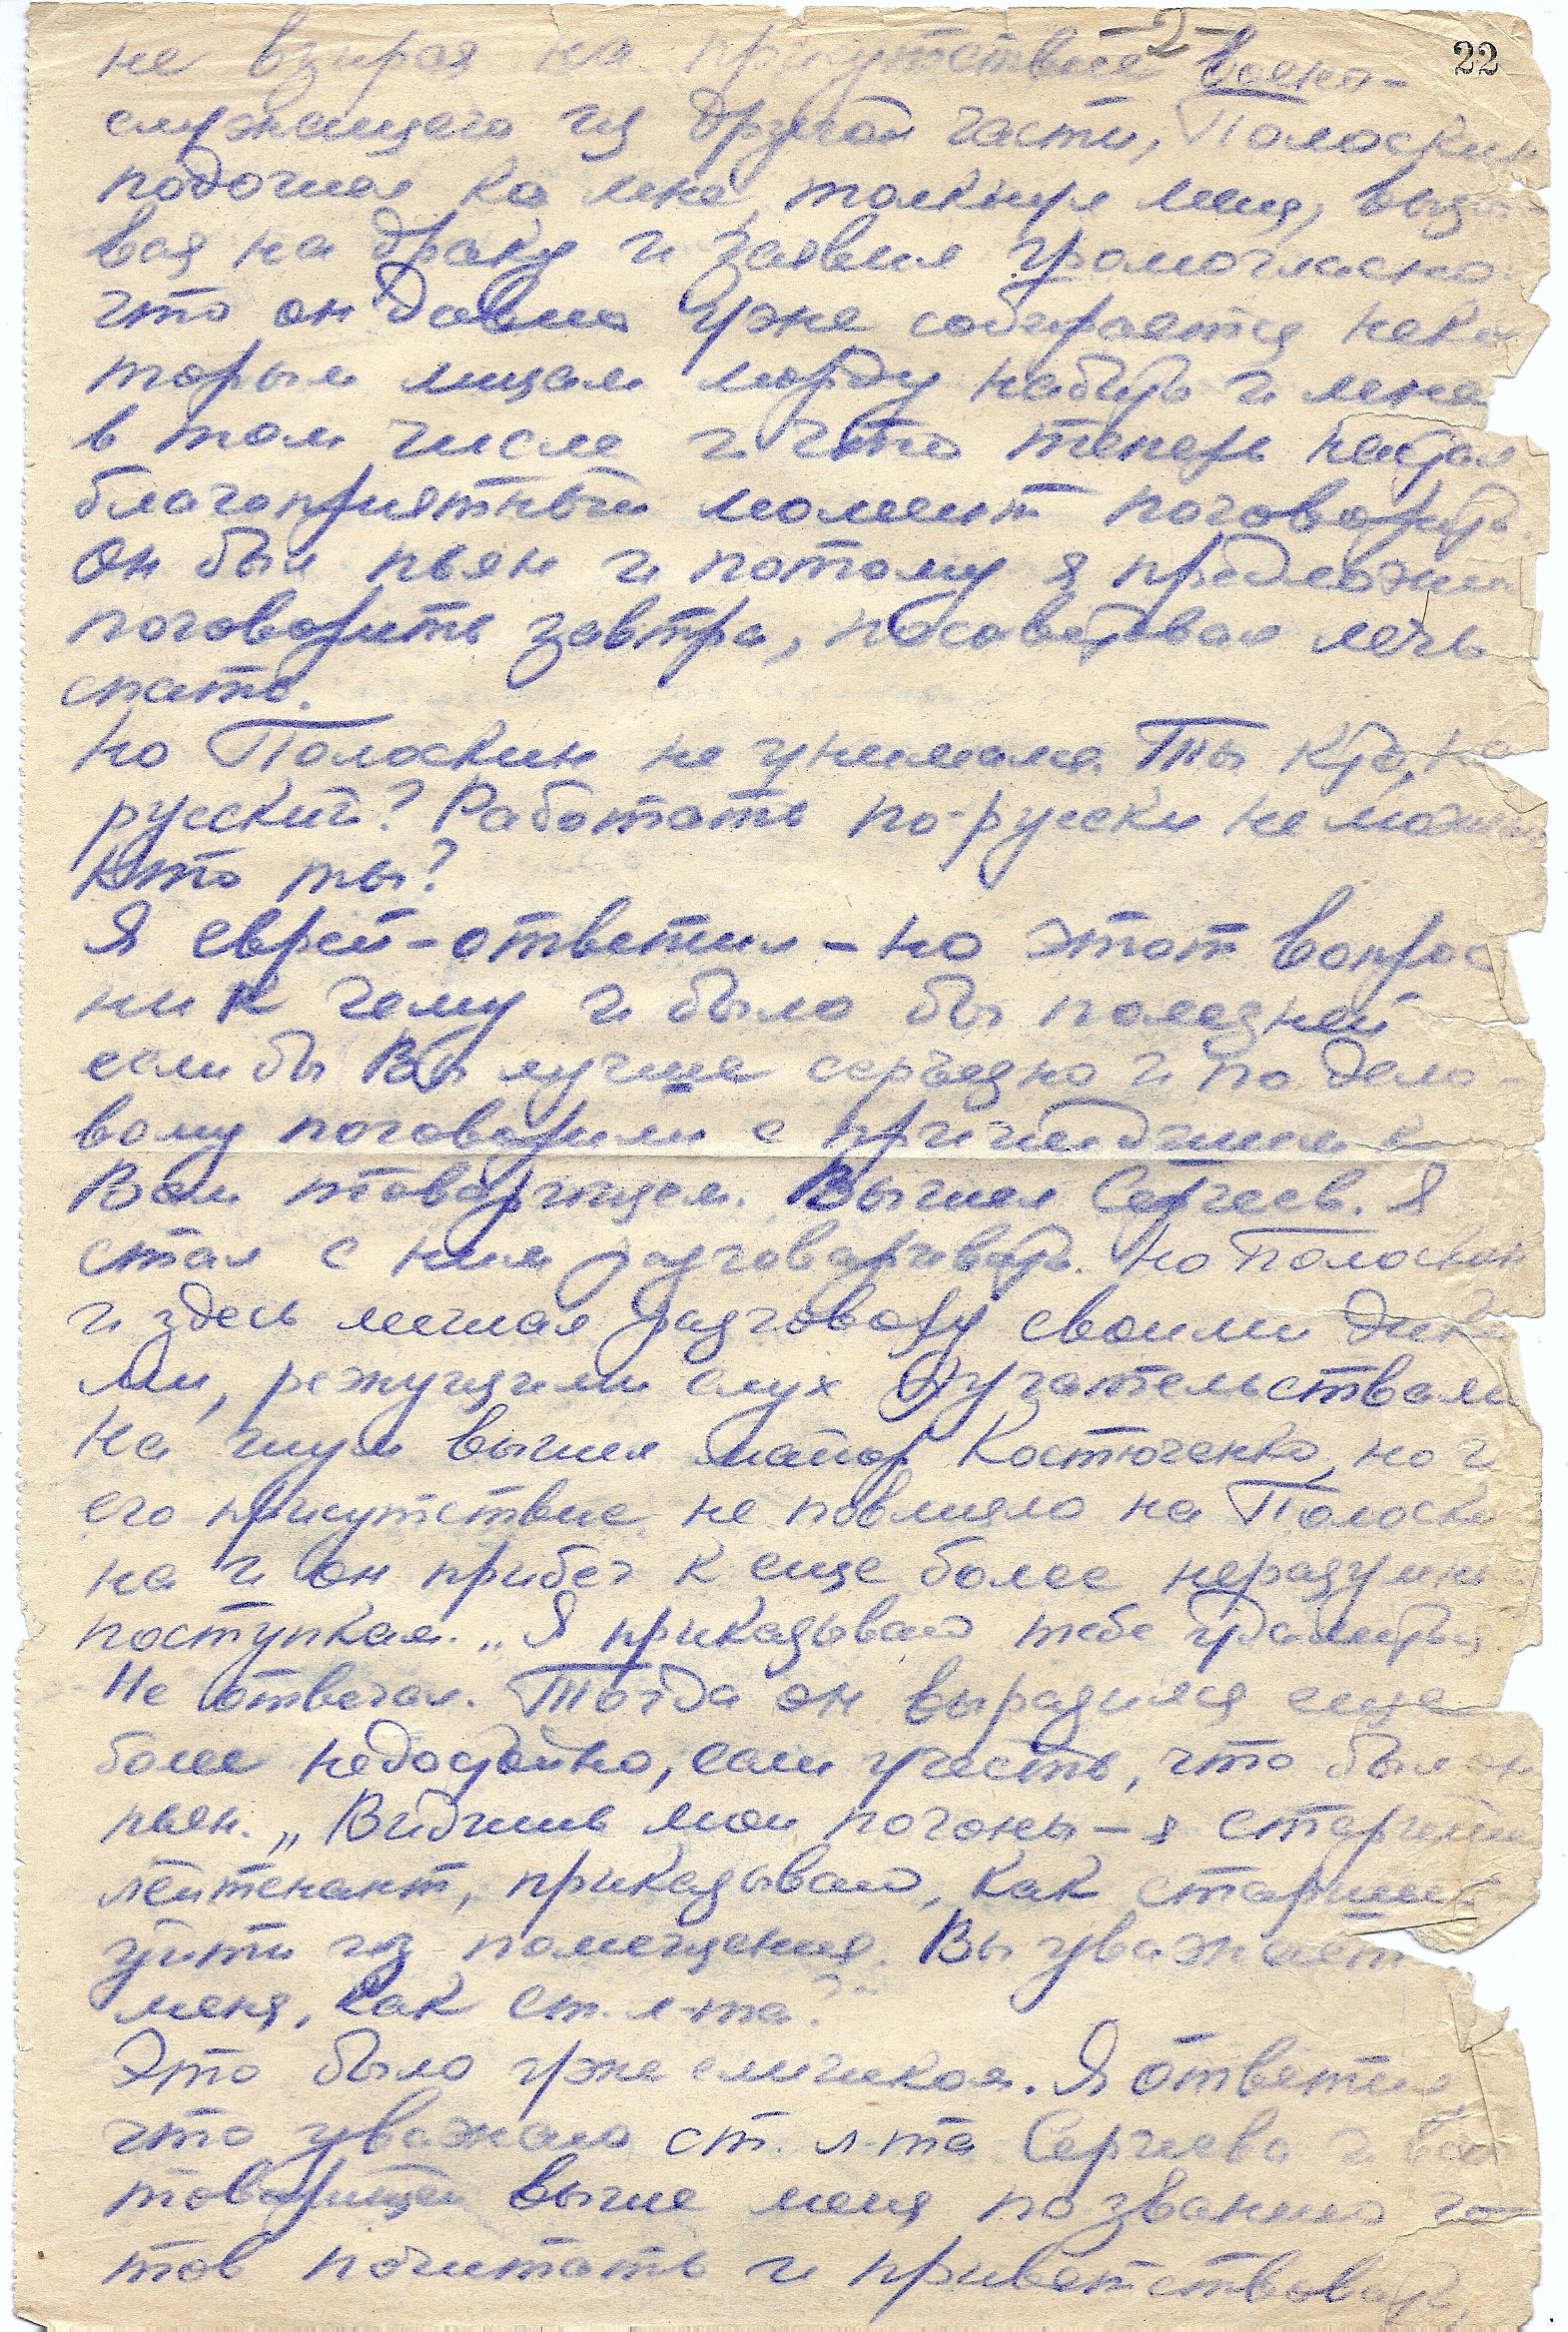 -2-
22
не взирая на присутствие военно-
служащего из другой части, Полоскин
подошел ко мне, толкнул меня, вызы-
вая на драку и заявил громогласно
что он давно уже собирается неко
торым лицам морду набить и мне
в том числе и что теперь настал
благоприятный момент поговорить.
Он был пьян и потому я предложил
поговорить завтра, посоветовал лечь
спать.
Но Полоскин не унимался. Ты кто, не
русский? Работать по-русски не можешь
Кто ты?
Я еврей - ответил - но этот вопрос
ни к чему и было бы полезней
если бы Вы лучше серьезно и по дело-
вому поговорили с пришедшим к
Вам товарищем. Вышел Сергеев. Я
стал с ним разговаривать. Но Полоскин
и здесь мешал разговору своими дики
ми, режущими слух ругательствами
На шум вышел майор Костюченко, но и
его присутствие не повлияло на Полоски
на и он прибег к еще более неразумн
поступкам. „Я приказываю тебе
Не отвечал. Тогда он выразился еще
более недостойно, если учесть, что был он
пьян. „Видишь мои погоны - я старший
лейтенант, приказываю, как старший
уйти из помещения. Вы уважает
меня, как ст. л-та?"
Это было уже слишком. Я ответил
что уважаю ст. л-та Сергеева и всех
товарищей выше меня по званию го
тов почитать и приветствовать,